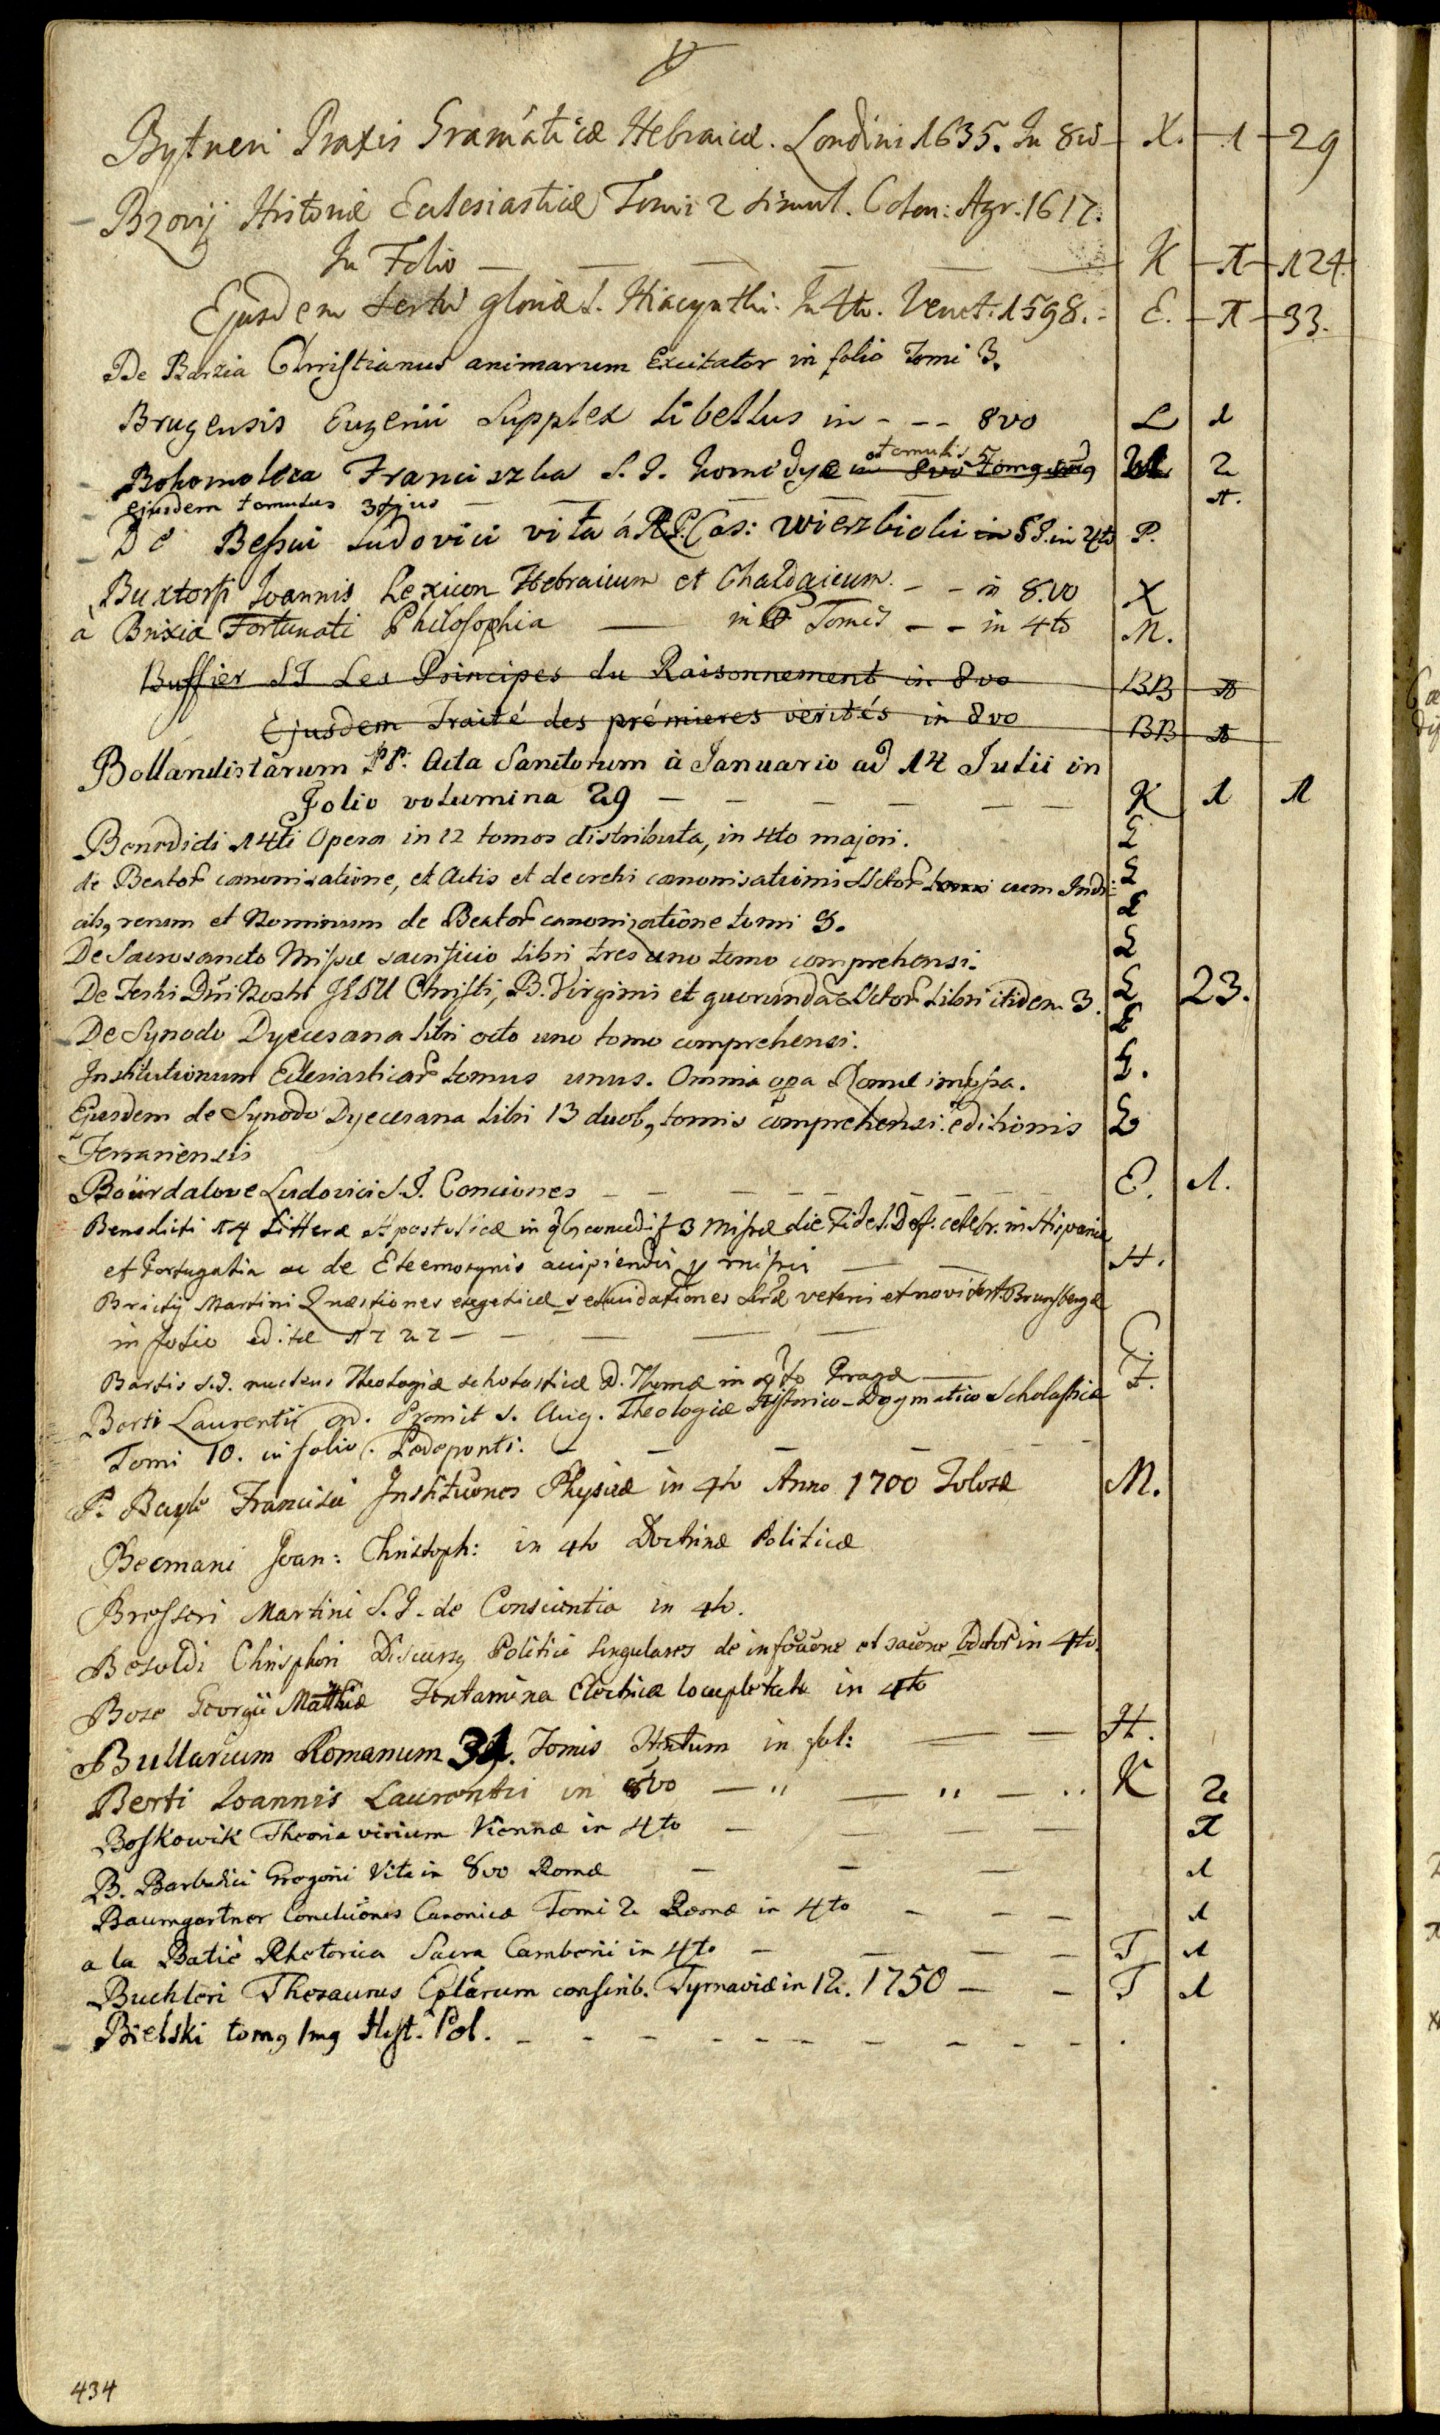 Bytneri Praxis Gramaticæ Hebraicæ. Londini 1635. In 8vo — X. — 1 — 29
Bzovij Historiæ Ecclesiasticæ Tomi 2 simul. Colon: Agr. 1617.
In Folio — K — 1 — 124
Ejusdem Serta gloriæ S. Hiacynthi. In 4to. Venet: 1598. — E. — 1 — 33.
De Barzia Christianus animarum Excitator in folio Tomi 3.
Brugensis Eugenii Supplex libellus in - - - 8vo L 1
tomulis 5
Bohomolca Franciszka S. J. komedyæ in 8vo 2
ejusdem tomulus 3tius — — 1.
De Bessui Ludovici vita á R.P. Cas: Wierzbicki S J. in 4to P.
Buxtorfi Joannis Lexicon Hebraicum et Chaldaicum. - - in 8.vo X
à Brixia Fortunati Philosophia — in Tomis - - in 4to M.
Buffier SJ Les Principes du Raisonnement in 8vo BB 1
Ejusdem Traité des prémieres verités in 8vo BB 1
Bollandistarum PP. Acta Sanctorum à Januario ad 14 Julii in
Folio volumina 29 — — — — — K 1 1
Benedicti 14ti Opera in 12 tomos distributa, in 4to majori. L
de Beator canonizatione, et Actis et decretis canonisationis SSctor tomi cum Indi- L
cib9 rerum et Nominum de Beator canonizatione tomi 3. L
De Sacrosancto Missæ sacrificio libri tres uno tomo comprehensi. L
De Festis Dni Nostri JESU Christi, B. Virginis et quorundã SSctor Libri itidem 3. L 23.
De Synodo Dyecesana libri octo uno tomo comprehensi. L
Institutionum Ecclesiasticar tomus unus. Omnia opa Romæ impssa. L.
Ejusdem de Synodo Dyecesana Libri 13 duob9 tomis comprehensi editionis L
Ferrariensis
Boürdaloue Ludovici S. J. Conciones — — — — — — C. 1.
Benedicti 14 Litteræ Apostolicæ in qb9 concedit 3 Missæ die Fidel. Def. celebr. in Hispania
et Portugalia ac de Eleemosynis accipiendis p missis — — H.
Brictij Martini Quæstiones exegeticæ s elucidationes Scræ veteris et novi test. Brunsbergæ
in folio editæ 1727 — — — — C.
Bartis S. J. nucleus Theologiæ scholasticæ D. Thomæ in 4to Pragæ — F.
Berti Laurentii Ord. Eremit S. Aug. Theologiæ Historico-Dogmatico Scholasticæ
Tomi 10. in folio. Pedeponti. — — — —
P. Bayle Francisci Institutiones Physicæ in 4to Anno 1700 Tolosæ M.
Becmani Joan: Christoph: in 4to Doctrinæ Politicæ
Bresseri Martini S. J. de Conscientia in 4to.
Besoldi Chrisphori Discurs9 Politici singulares de in 4to.
Bose Georgii Mathiæ Tentamina Electrica locupletata in 4to
Bullarium Romanum 31. Tomis in fol: — — H.
Berti Joannis Laurentii in 8vo — „ — „ — .. K 2
Boskowik Theoria virium Viennæ in 4to — — — — 1
B. Barbadici Gregorii Vita in 8vo Romæ — — — 1
Baumgartner Conclusiones Canonicæ Tomi 2 Romæ in 4to — — — 1
a la Batie Rhetorica Sacra Camberii in 4to — — — — T 1
Buchleri Thesaurus Eplarum conscrib. Tyrnaviæ in 12. 1750 — — T 1
Bielski tom9 1m9 Hyst. Pol. - - - - - - - - - - .
434